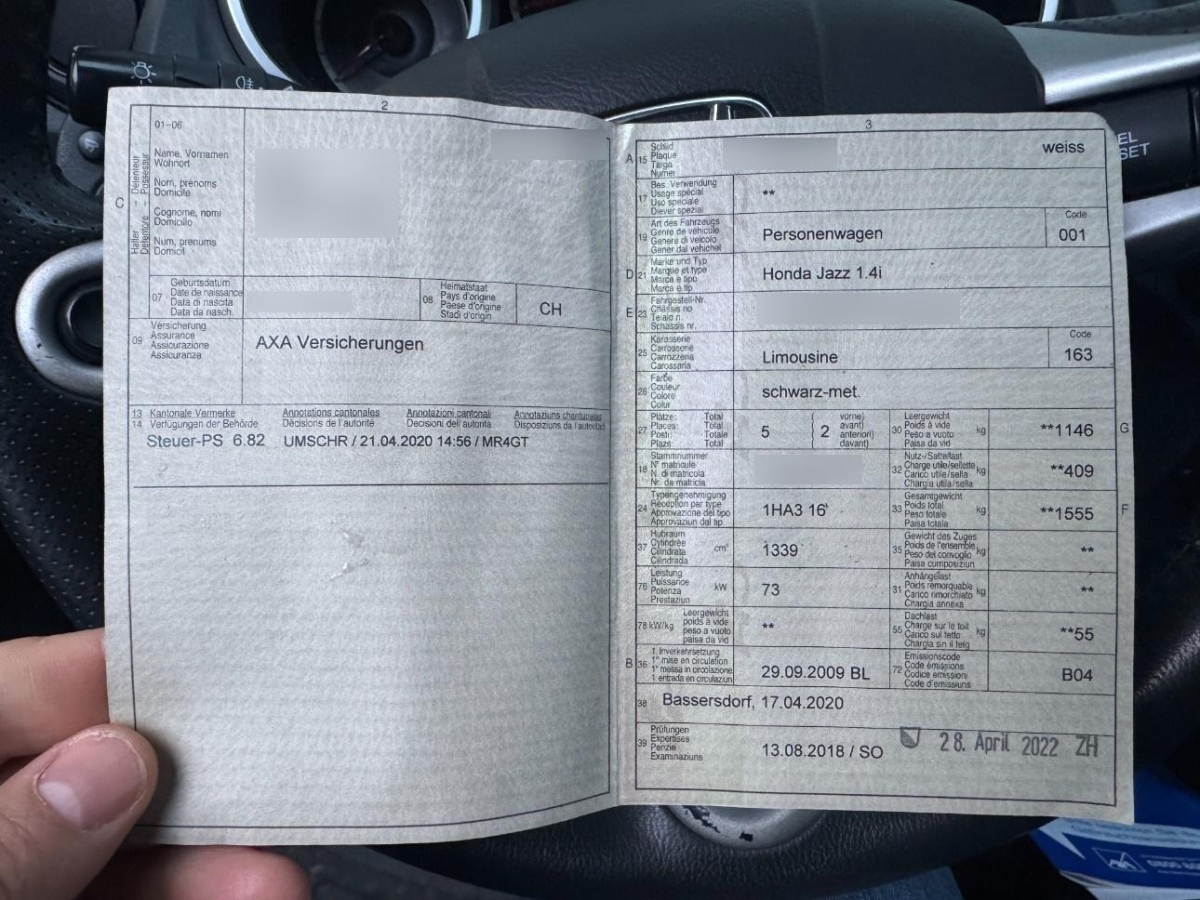 2
01-06
C
Halter - Détenteur
Detentore - Possessur
Name, Vornamen
Wohnort
Nom, prénoms
Domicile
Cognome, nomi
Domicilio
Num, prenums
Domicil
07
Geburtsdatum
Date de naissance
Data di nascita
Data da nasch.
08
Heimatstaat
Pays d'origine
Paese d'origine
Stadi d'origin
CH
09
Versicherung
Assurance
Assicurazione
Assicuranza
AXA Versicherungen
13 Kantonale Vermerke Annotations cantonales Annotazioni cantonali Annotaziuns chantunalas
14 Verfügungen der Behörde Décisions de l'autorité Decisioni dell'autorità Disposiziuns da l'autoritad
Steuer-PS 6.82 UMSCHR / 21.04.2020 14:56 / MR4GT
3
A 15
Schild
Plaque
Targa
Numer
weiss
17
Bes. Verwendung
Usage spécial
Uso speciale
Diever spezial
**
19
Art des Fahrzeugs
Genre de véhicule
Genere di veicolo
Gener dal vehichel
Personenwagen
Code
001
D 21
Marke und Typ
Marque et type
Marca e tipo
Marca e tip
Honda Jazz 1.4i
E 23
Fahrgestell-Nr.
Châssis no
Telaio n.
Schassis nr.
25
Karosserie
Carrosserie
Carrozzeria
Carossaria
Limousine
Code
163
26
Farbe
Couleur
Colore
Colur
schwarz-met.
27
Plätze: Total
Places: Total
Posti: Totale
Plazs: Total
5
2
vorne)
avant)
anteriori)
davant)
30
Leergewicht
Poids à vide
Peso a vuoto
Paisa da vid
kg
**1146
G
18
Stammnummer
N° matricule
N. di matricola
Nr. da matricla
32
Nutz-/Sattellast
Charge utile/sellette
Carico utile/sella
Chargia utila/sella
kg
**409
24
Typengenehmigung
Réception par type
Approvazione del tipo
Approvaziun dal tip
1HA3 16
33
Gesamtgewicht
Poids total
Peso totale
Paisa totala
kg
**1555
F
37
Hubraum
Cylindrée
Cilindrata
Cilindrada
cm³
1339
35
Gewicht des Zuges
Poids de l'ensemble
Peso del convoglio
Paisa cumposiziun
kg
**
76
Leistung
Puissance
Potenza
Prestaziun
kW
73
31
Anhängelast
Poids remorquable
Carico rimorchiato
Chargia annexa
kg
**
78 kW/kg
Leergewicht
poids à vide
peso a vuoto
paisa da vid
**
55
Dachlast
Charge sur le toit
Carico sul tetto
Chargia sin il tetg
kg
**55
B 36
1. Inverkehrsetzung
1re mise en circulation
1a messa in circolazione
1. entrada en circulaziun
29.09.2009 BL
72
Emissionscode
Code émissions
Codice emissioni
Code d'emissiuns
B04
38 Bassersdorf, 17.04.2020
39
Prüfungen
Expertises
Perizie
Examinaziuns
13.08.2018 / SO
28. April 2022 ZH
AXA